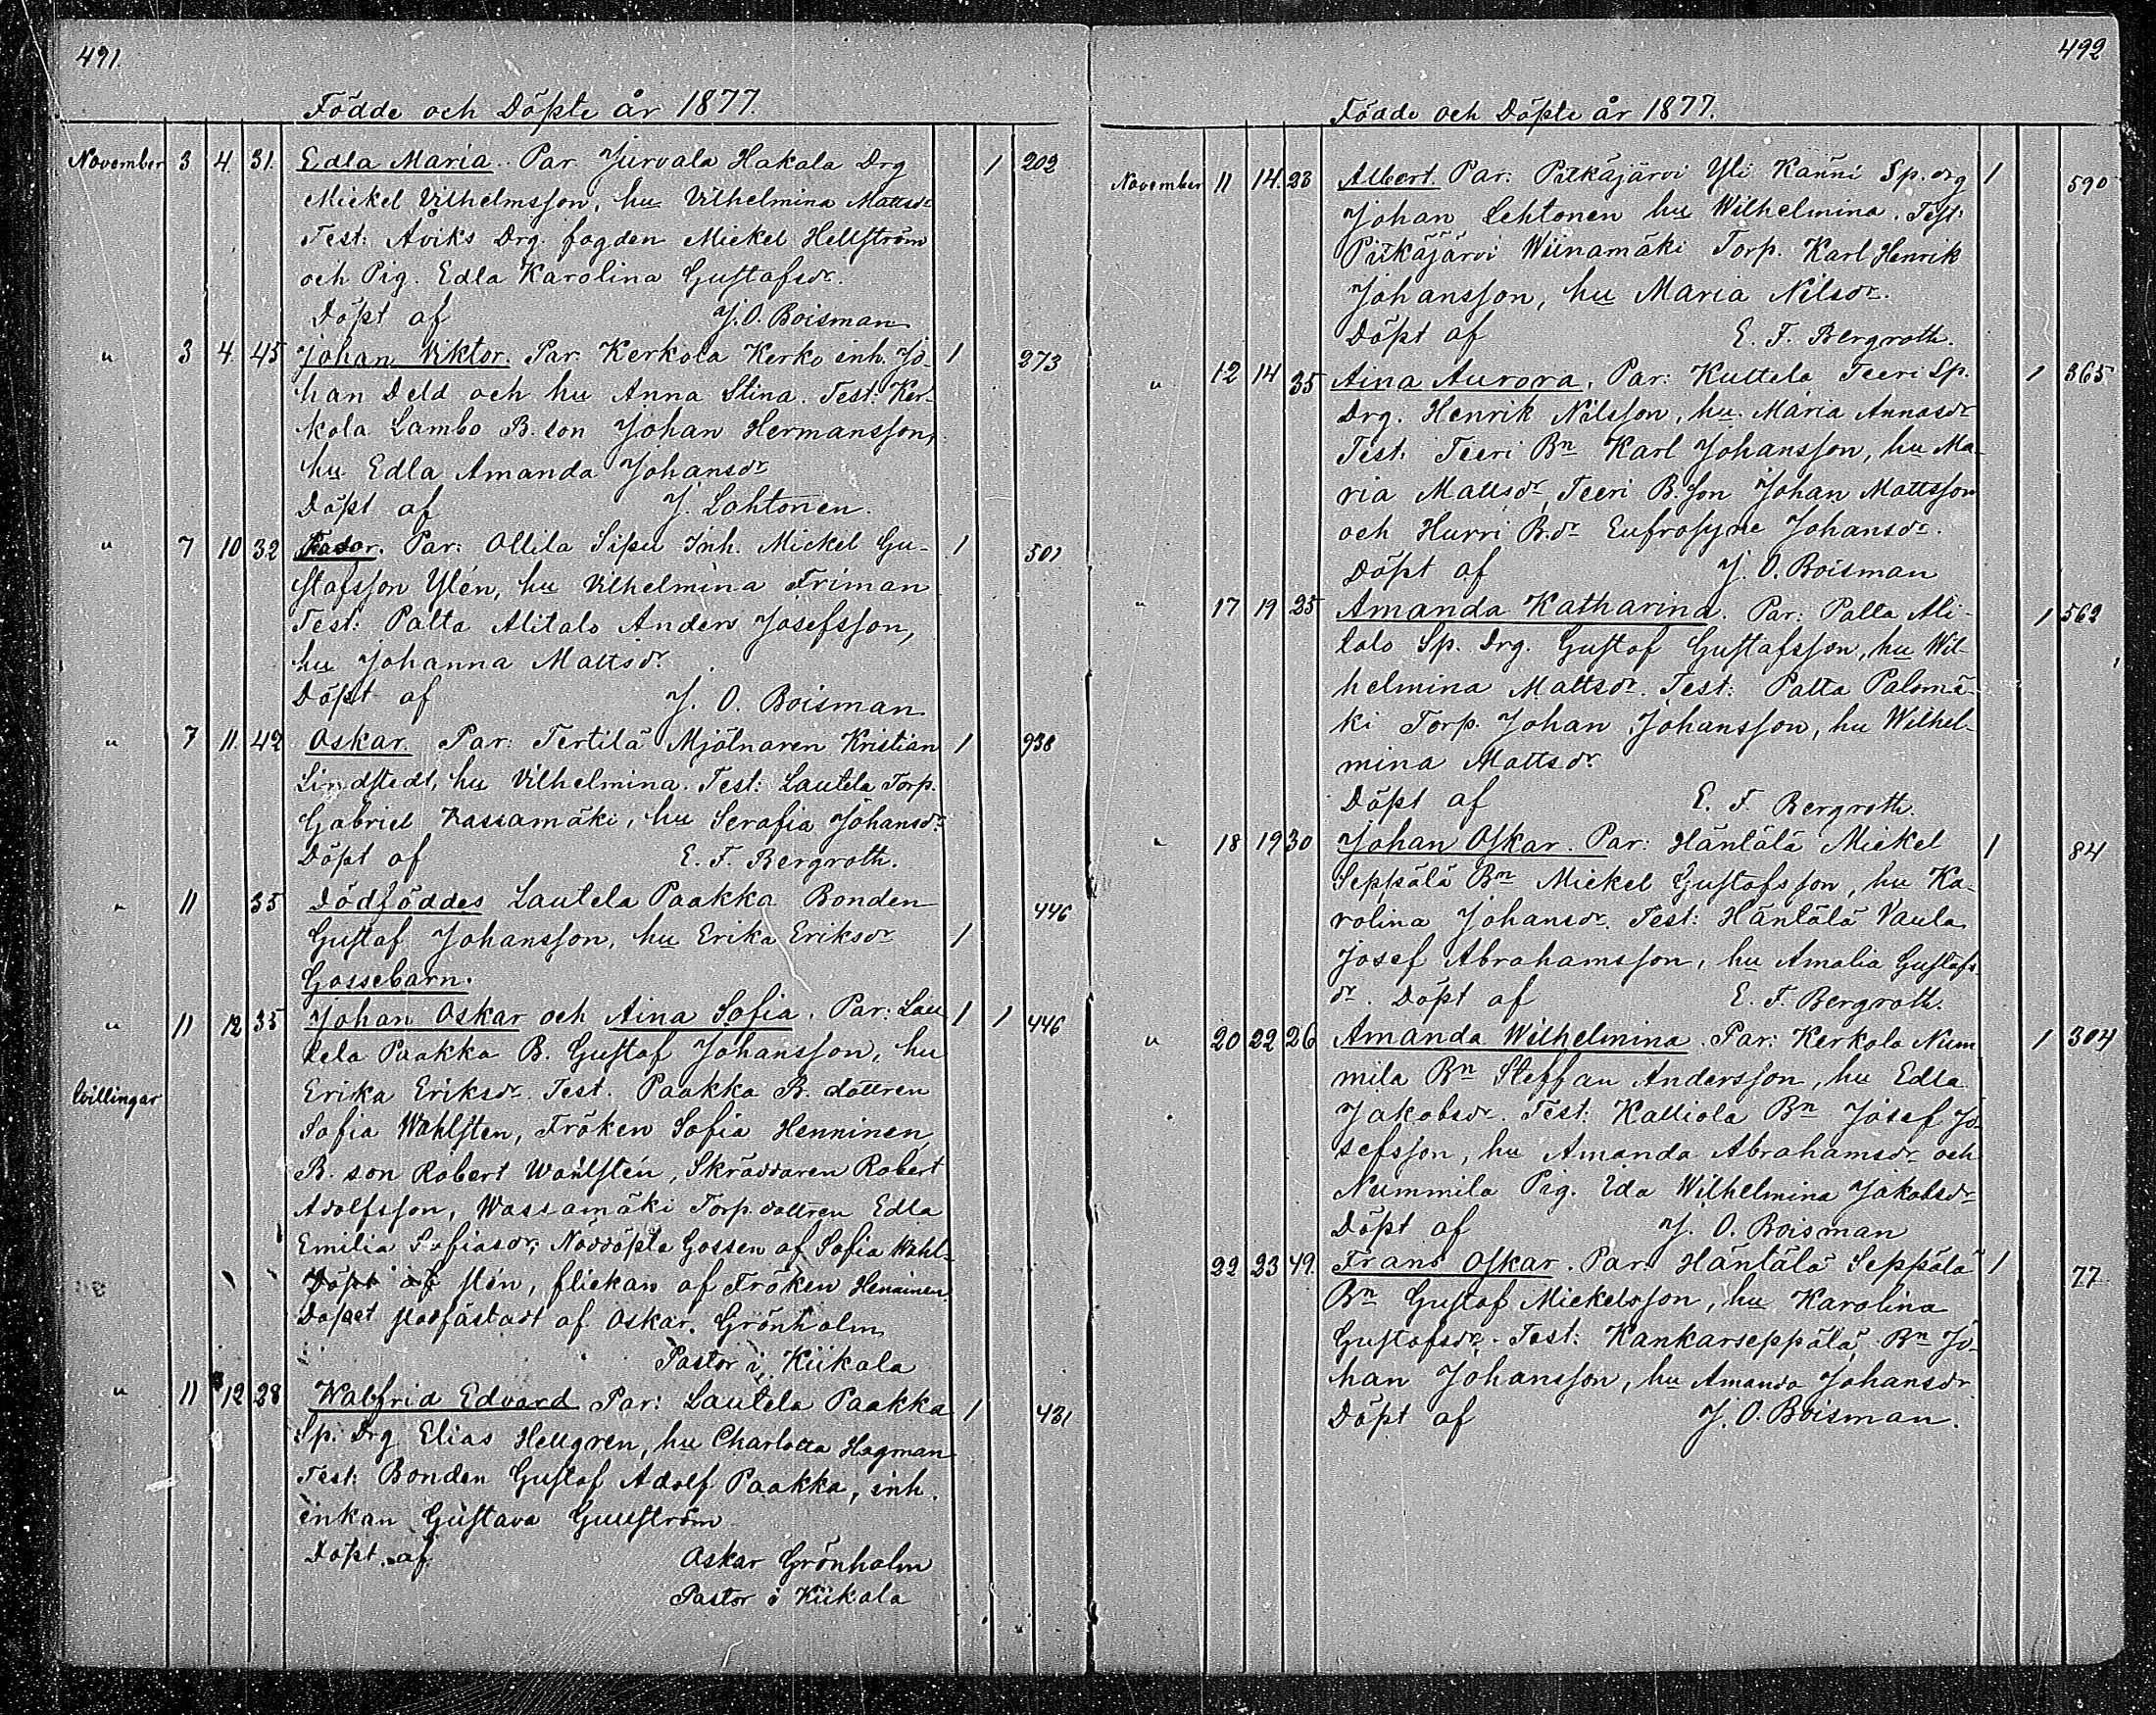 491.
Födde och Döpte år 1877.
November 3 4. 31. Edla Maria. Par Jurvala Hakala Drg 1 202
Mickel Vilhelmsson, hu Vilhelmina Mattsdr
Test: Åviks Drg. fogden Mickel Hellström
och Pig. Edla Karolina Gustafsdr.
Döpt af J. O. Boisman
" 3 4 45 Johan Viktor. Par Kerkola Kerko inh. Jo- 1 273
han Deld och hu Anna Stina. Test: Ker-
kola Lambo B. son Johan Hermansson,
hu Edla Amanda Johansdr
Döpt af J. Lahtonen.
" 7 10 32 Par: Ollila Sipu Inh. Mickel Gu- 1 501
stafsson Ylén, hu Vilhelmina Friman
Test: Palta Alitalo Anders Josefsson,
hu Johanna Mattsdr.
Döpt af J. O. Boisman
" 7 11. 42 Oskar. Par: Tertilä Mjölnaren Kristian 1 938
Lindstedt, hu Vilhelmina. Test: Lautela Torp.
Gabriel Kassamäki, hu Serafia Johansdr.
Döpt af E. F. Bergroth.
" 11 35 Dödföddes Lautela Paakka Bonden 446
Gustaf Johansson, hu Erika Eriksdr 1
Gossebarn.
" 11 12 35 Johan Oskar och Aina Sofia. Par: Lau 1 1 446
tela Paakka B. Gustaf Johansson, hu
tvillingar Erika Eriksdr. Test. Paakka B. dottren
Sofia Wahlsten, Fröken Sofia Henninen
B. son Robert Wahlstén, Skräddaren Robert
Adolfsson, Wassamäki Torp. dottren Edla
Emilia Sofiasdr; Nöddöpte Gossen af Sofia Wahl-
Döpt af stén, flickan af Fröken Henninen.
Dopet stadfästadt af Oskar Grönholm
Pastor i Kiikala
" 11 12 28 Walfrid Edvard Par: Lautela Paakka 1 431
Sp. Drg Elias Hellgren, hu Charlotta Hagman
Test: Bonden Gustaf Adolf Paakka, inh.
enkan Gustava Gullström
Döpt af Oskar Grönholm
Pastor i Kiikala
492
Födde och Döpte år 1877.
November 11 14. 23 Albert. Par: Pitkäjärvi Yli Känni Sp. drg 1 590
Johan Lehtonen hu Wilhelmina. Test:
Pitkäjärvi Wiinamäki Torp. Karl Henrik
Johansson, hu Maria Nilsdr.
Döpt af E. F. Bergroth.
" 12 14 35 Aina Aurora. Par: Kuttela Teeri Sp. 1 365
Drg. Henrik Nilsson, hu. Maria Annasdr
Test: Teeri Bn Karl Johansson, hu Ma-
ria Mattsdr, Teeri B. son Johan Mattsson
och Hurri B.dr Eufrosyne Johansdr.
Döpt af J. O. Boisman
" 17 19 25 Amanda Katharina. Par: Palta Ali- 1 562
talo Sp. Drg. Gustaf Gustafsson, hu Wil-
helmina Mattsdr. Test: Palta Palomä-
ki Torp. Johan Johansson, hu Wilhel-
mina Mattsdr
Döpt af E. F. Bergroth.
" 18 19 30 Johan Oskar. Par: Häntälä Mickel 1 84
Seppälä Bn Mickel Gustafsson, hu Ka-
rolina Johansdr. Test: Häntälä Vaula
Josef Abrahamsson, hu Amalia Gustafs-
dr. Döpt af E. F. Bergroth.
" 20 22 26 Amanda Wilhelmina. Par: Kerkola Num 1 304
mila Bn Steffan Andersson, hu Edla
Jakobsdr. Test: Kalliola Bn Josef Jo-
sefsson, hu Amanda Abrahamsdr och
Nummila Pig. Ida Wilhelmina Jakobsdr
Döpt af J. O. Boisman
22 23 49. Frans Oskar. Par: Häntälä Seppälä 1 77
Bn Gustaf Mickelsson, hu Karolina
Gustafsdr. Test: Kankarseppälä Bn Jo-
han Johansson, hu Amanda Johansdr
Döpt af J. O. Boisman.